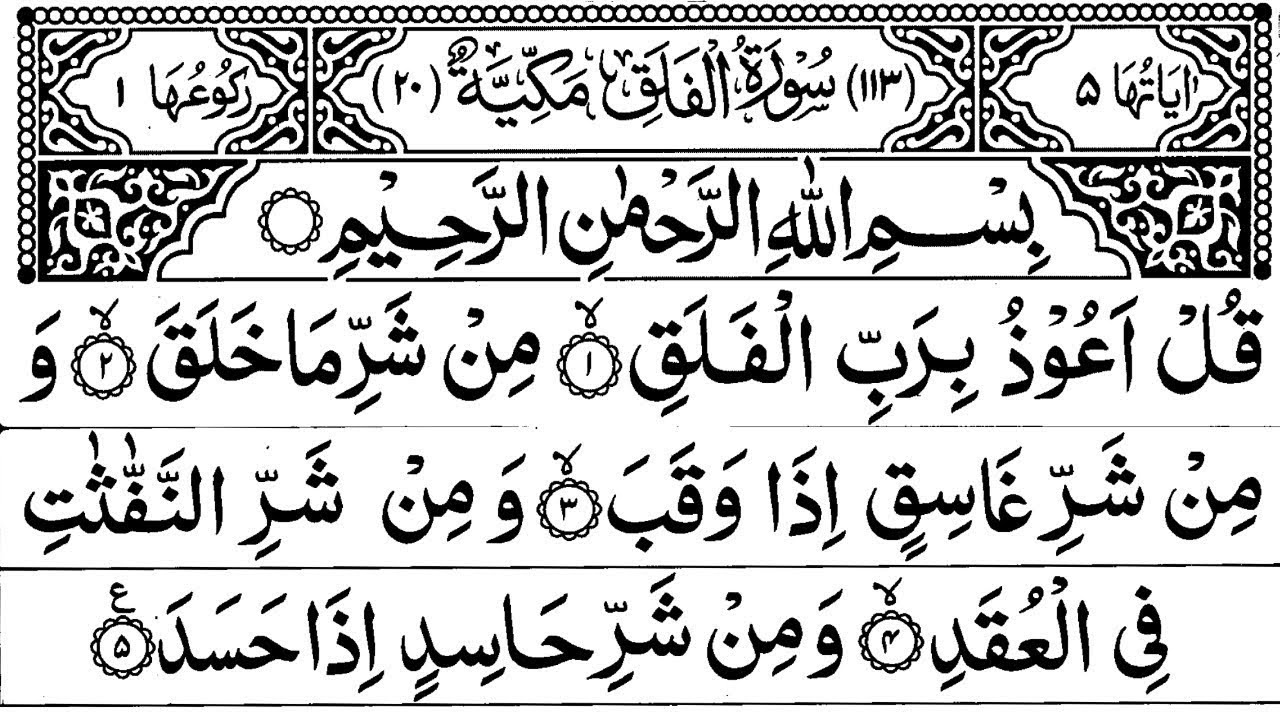 اٰيَاتُهَا ۵ (۱۱۳) سُوْرَةُ الْفَلَقِ مَكِّيَّةٌ (۲۰) رُكُوْعُهَا ۱
بِسْمِ اللّٰهِ الرَّحْمٰنِ الرَّحِيْمِ
قُلْ اَعُوْذُ بِرَبِّ الْفَلَقِ ۙ‏﴿۱﴾ مِنْ شَرِّ مَا خَلَقَ ۙ‏﴿۲﴾ وَ
مِنْ شَرِّ غَاسِقٍ اِذَا وَقَبَ ۙ‏﴿۳﴾ وَ مِنْ شَرِّ النَّفّٰثٰتِ
فِي الْعُقَدِ ۙ‏﴿۴﴾ وَ مِنْ شَرِّ حَاسِدٍ اِذَا حَسَدَ ﴿۵﴾ ع